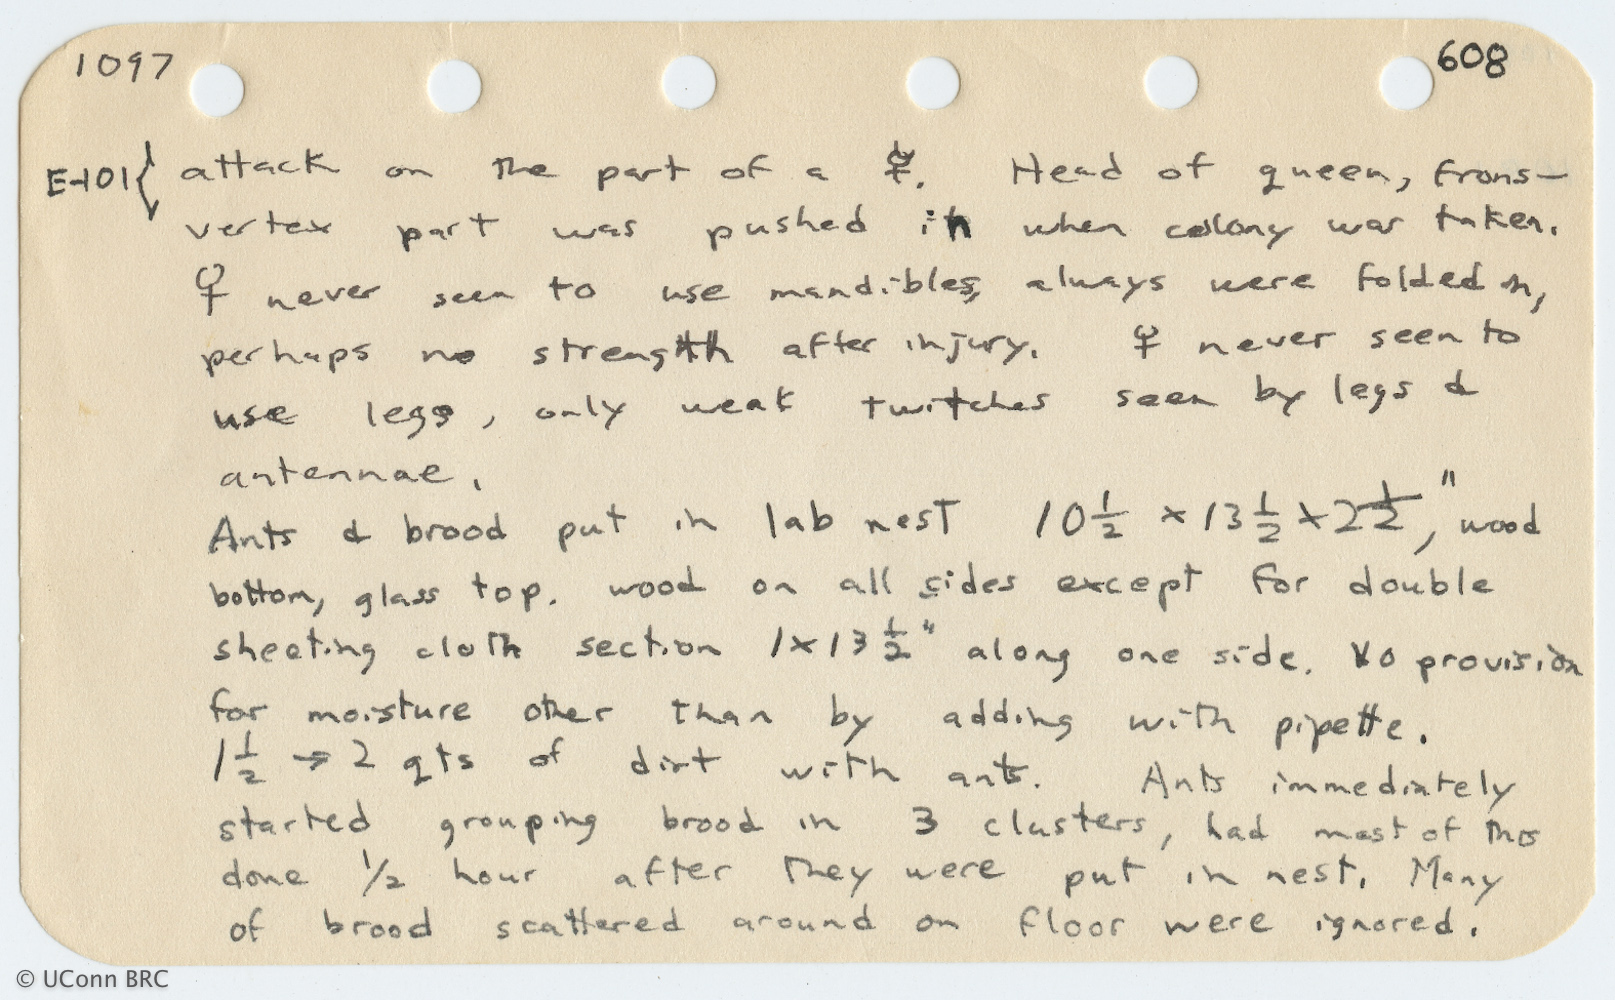 1097 608
E-101 { attack on the part of a ☿. Head of queen, frons-
vertex part was pushed in when colony was taken.
♀ never seen to use mandibles, always were folded in,
perhaps no strength after injury. ♀ never seen to
use legs, only weak twitches seen by legs &
antennae.
Ants & brood put in lab nest 10½ x 13½ x 2½", wood
bottom, glass top. wood on all sides except for double
sheeting cloth section 1 x 13½" along one side. No provision
for moisture other than by adding with pipette.
1½ → 2 qts of dirt with ants. Ants immediately
started grouping brood in 3 clusters, had most of this
done ½ hour after they were put in nest. Many
of brood scattered around on floor were ignored.
© UConn BRC